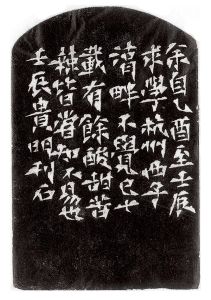 余自乙酉至壬辰
求學杭州西子
湖畔不覺已七
載有餘酸甜苦
辣皆嘗知不易也
壬辰貴明刊石